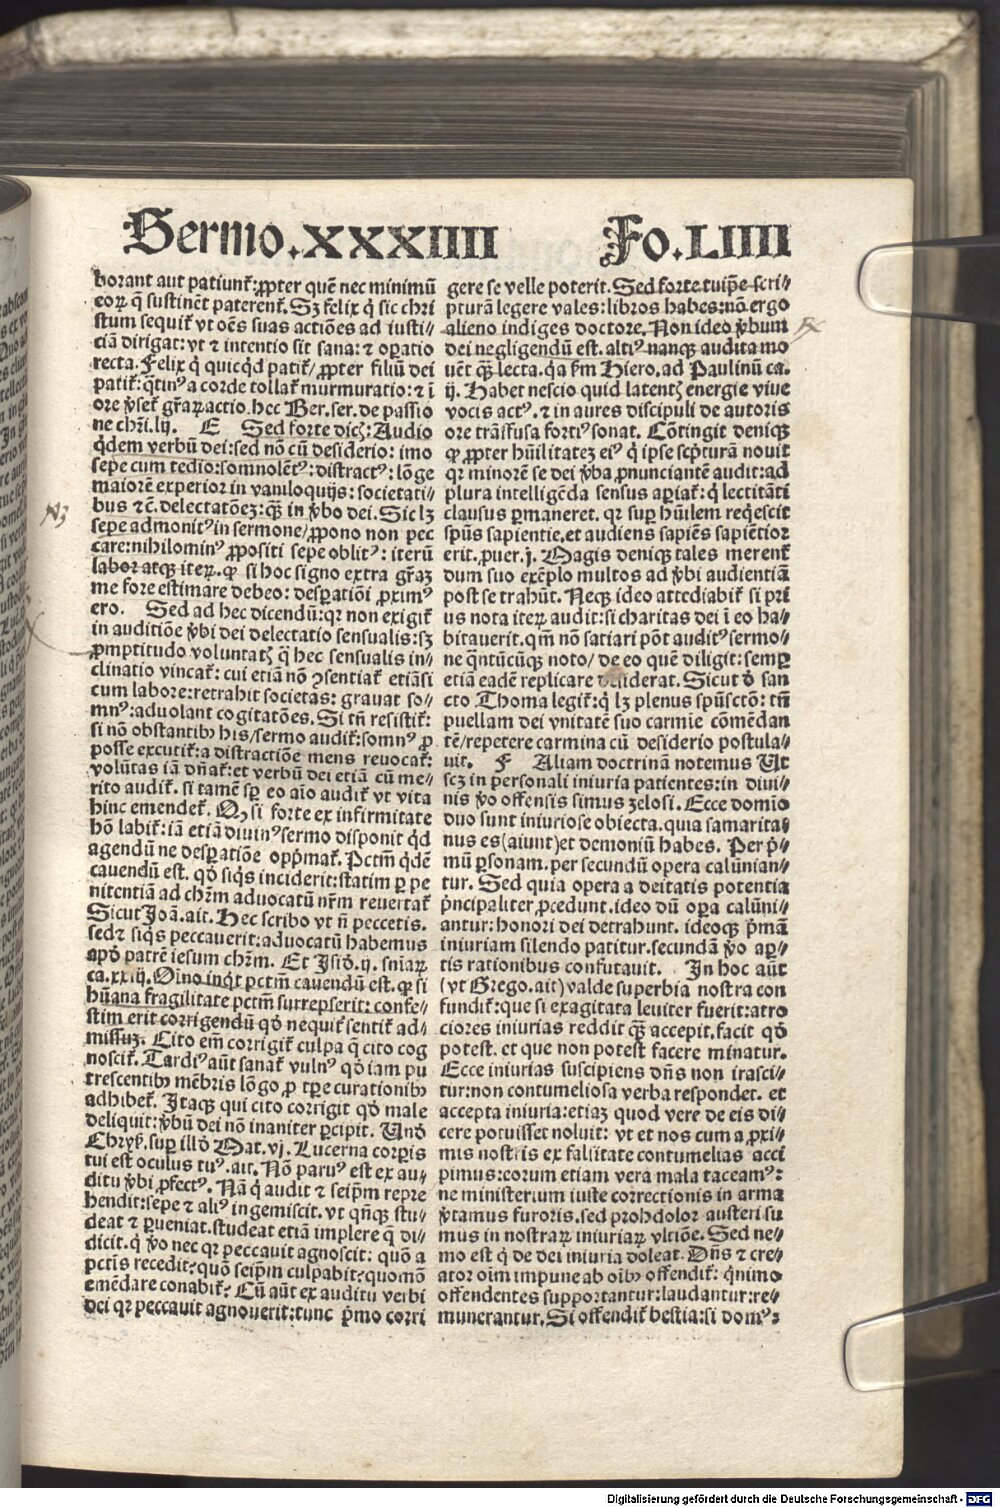 Sermo.XXXIIII Fo.LIIII
borant aut patiunť:ꝓpter quē nec minimū
eoꝝ q̄ sustinēt paterenť. Sꝫ felix q̇ sic chri
stum sequiť vt oēs suas actiōes ad iusti⸗
ciā dirigat: vt ⁊ intentio sit sana: ⁊ oꝑatio
recta. Felix q̇ quicq̇d patiť/ ꝓpter filiū dei
patiť: q̄tinꝰ a corde tollať murmuratio: ⁊ ī
ore v̓seť gr̄aꝝ actio. hec Ber. ser. de passio
ne chr̄i. lij. E Sed forte dicꝭ: Audio
q̇dem verbū dei: sed nō cū desiderio: imo
sepe cum tedio: somnolētꝰ: distractꝰ: lōge
maiorē experior in vaniloquijs: societati⸗
bus ⁊ c̄. delectatōeꝫ: qꝫ̄ in v̓bo dei. Sic lꝫ
sepe admonitꝰ in sermone/ ꝓpono non pec
care: nihilominꝰ ꝓpositi sepe oblitꝰ: iterū
labor atqꝫ iteꝝ. ꝙ si hoc signo extra gr̄aꝫ
me fore estimare debeo: desꝑatiōi ꝓximꝰ
ero. Sed ad hec dicendū: qꝛ non exigiť
in auditiōe v̓bi dei delectatio sensualis: sꝫ
ꝓmptitudo voluntatꝭ q̄ hec sensualis in⸗
clinatio vincať: cui etiā nō ꝯsentiať etiāsi
cum labore: retrahit societas: grauat so⸗
mnꝰ: aduolant cogitatōes. Si tn̄ resistiť:
si nō obstantibꝰ his/ sermo audiť: somnꝰ ꝓ
posse excutiť: a distractiōe mens reuocať:
volūtas iā dn̄ať: et verbū dei etiā cū me⸗
rito audiť. si tamē sꝑ eo aīo audiť vt vita
hinc emendeť. Qꝫ si forte ex infirmitate
hō labiť: iā etiā diuinꝰ sermo disponit q̇d
agendū ne desꝑatiōe opp̄mať. Pctm̄ q̇dē
cauendū est. qd̓ siq̇s inciderit: statim ꝑ pe
nitentiā ad chr̄m aduocatū nr̄m reuertať
Sicut Joā. ait. Hec scribo vt n̄ peccetis.
sedꝫ siq̇s peccauerit: aduocatū habemus
apd̓ patrē iesum chr̄m. Et Isid̓. ij. sn̄iaꝝ
ca. xxiij. Oīno inq̇t pctm̄ cauendū est. ꝙ si
hūana fragilitate pctm̄ surrepserit: confe⸗
stim erit corrigendū qd̓ nequiť sentiť ad⸗
missuꝫ. Cito em̄ corrigiť culpa q̄ cito cog
nosciť. Tardiꝰ aūt sanať vulnꝰ qd̓ iam pu
trescentibꝰ mēbris lōgo ꝓ tꝑe curationibꝰ
adhibeť. Itaqꝫ qui cito corrigit qd̓ male
deliquit: v̓bū dei nō inaniter ꝑcipit. Und̓
Chryẜ. suꝑ ill̓d̓ Mat. vj. Lucerna corꝑis
tui est oculus tuꝰ. ait. Nō paruꝰ est ex au⸗
ditu v̓bi ꝓfectꝰ. Nā q̇ audit ⁊ seip̄m repre
hendit: sepe ⁊ aliꝰ ingemiscit. vt qn̄qꝫ stu⸗
deat ⁊ ꝑueniat. studeat etiā implere q̄ di⸗
dicit. q̇ v̓o nec qꝛ peccauit agnoscit: quō a
pctīs recedit? quō seip̄m culpabit? quomō
emēdare conabiť? Cū aūt ex auditu verbi
dei qꝛ peccauit agnouerit: tunc p̄mo corri
gere se velle poterit. Sed forte tuip̄e scri⸗
pturā legere vales: libros habes: nō ergo
alieno indiges doctore. Non ideo v̓bum
dei negligendū est. altiꝰ nanqꝫ audita mo
uēt qꝫ̄ lecta. q̇a ẜm Hiero. ad Paulinū ca.
ij. Habet nescio quid latentꝭ energie viue
vocis actꝰ. ⁊ in aures discipuli de autoris
ore trāffusa fortiꝰ sonat. Cōtingit deniqꝫ
ꝙ ꝓpter hūilitateꝫ eiꝰ q̇ ipse scpturā nouit
qꝛ minorē se dei v̓ba ꝓnunciantē audit: ad
plura intelligēda sensus aꝑiať: q̇ lectitāti
clausus ꝑmaneret. qꝛ suꝑ hūilem req̇escit
spūs sapientie. et audiens sapiēs sapiētior
erit. ꝓuer. j. Magis deniqꝫ tales merenť
dum suo exēplo multos ad v̓bi audientiā
post se trahūt. Neqꝫ ideo attediabiť si pri
us nota iteꝝ audit: si charitas dei ī eo ha⸗
bitauerit. qm̄ nō satiari pōt auditꝰ sermo⸗
ne q̄ntūcūqꝫ noto/ de eo quē diligit: semꝑ
etiā eadē replicare desiderat. Sicut d̓ san
cto Thoma legiť: q̇ lꝫ plenus spūscto: tn̄
puellam dei vnitatē suo carmīe cōmēdan
tē/ repetere carmina cū desiderio postula⸗
uit. F Aliam doctrinā notemus Ut
scꝫ in personali iniuria patientes: in diui⸗
nis v̓o offensis simus zelosi. Ecce domīo
duo sunt iniuriose obiecta. quia samarita⸗
nus es (aiunt) et demoniū habes. Per p̄⸗
mū ꝑsonam. per secundū opera calūnian⸗
tur. Sed quia opera a deitatis potentia
p̄ncipaliter ꝓcedunt. ideo dū oꝑa calūni⸗
antur: honori dei detrahunt. ideoqꝫ p̄mā
iniuriam silendo patitur. secundā v̓o aꝑ⸗
tis rationibus confutauit. In hoc aūt
(vt Grego. ait) valde superbia nostra con
fundiť: que si exagitata leuiter fuerit: atro
ciores iniurias reddit qꝫ̄ accepit. facit qd̓
potest. et que non potest facere minatur.
Ecce iniurias suscipiens dn̄s non irasci⸗
tur: non contumeliosa verba respondet. et
accepta iniuria: etiaꝫ quod vere de eis di⸗
cere potuisset noluit: vt et nos cum a ꝓxi⸗
mis nostris ex falsitate contumelias acci
pimus: eorum etiam vera mala taceamꝰ:
ne ministerium iuste correctionis in arma
v̓tamus furoris. sed proh dolor austeri su
mus in nostraꝝ iniuriaꝝ vltiōe. Sed ne⸗
mo est q̇ de dei iniuria doleat. Dn̄s ⁊ cre⸗
ator oīm impune ab oībꝰ offendiť: q̇nimo
offendentes supportantur: laudantur: re⸗
munerantur. Si offendiť bestia: si domꝰ:
Digitalisierung gefördert durch die Deutsche Forschungsgemeinschaft - DFG